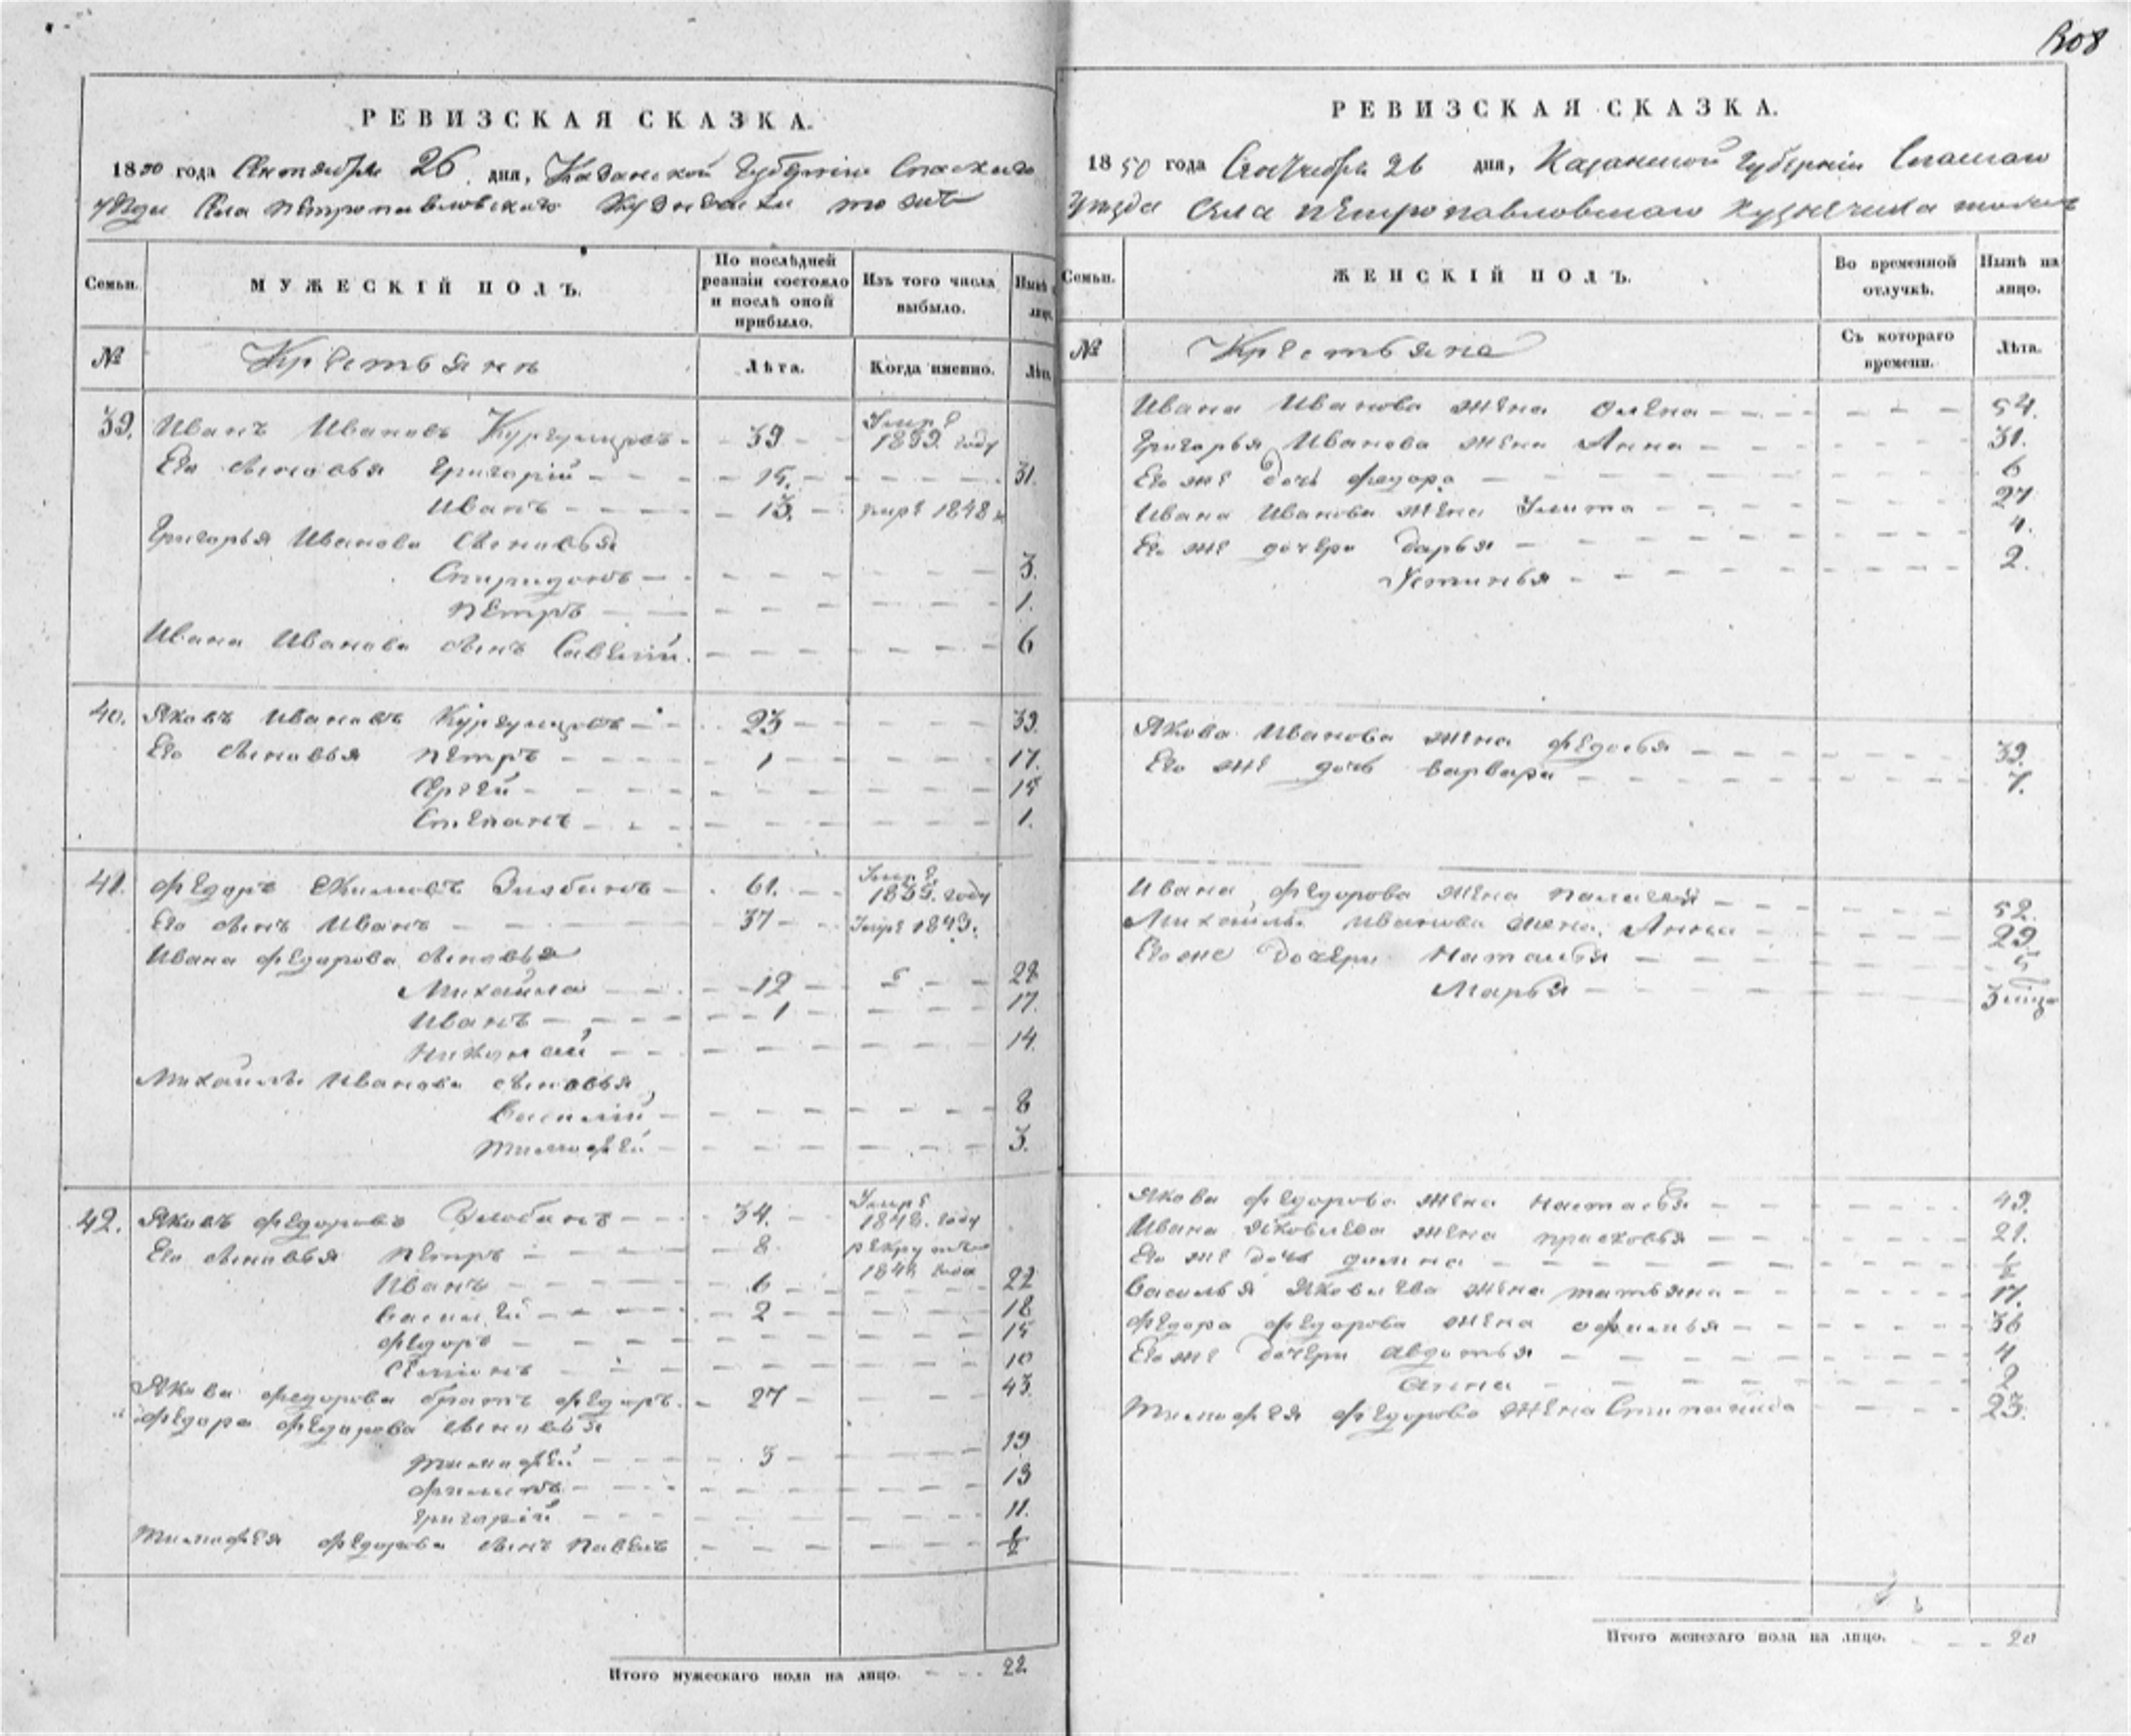 308
РЕВИЗСКАЯ СКАЗКА.
1850 года Сентября 26 дня, Казанской Губернии Спаского
уѣзда Села Петропавловскаго
Семьи.
МУЖЕСКІЙ ПОЛЪ.
По послѣдней ревизіи состояло и послѣ оной прибыло.
Изъ того числа выбыло.
Нынѣ
лицо.
№
Крестьяне
Лѣта.
Когда именно.
Лѣта
39. Иванъ Ивановъ 39 Умре 1839. году
Его сыновья Григорій 15. 31.
Иванъ 13. умре 1848
Григорья Иванова сыновья
Спиридонъ 3.
Петръ 1.
Ивана Иванова сынъ Савелій 6
40. Яковъ Ивановъ 23 39.
Его сыновья Петръ 1 17.
Сергей 15
Степанъ 1.
41. Федоръ Злобинъ 61. Умре 1835. году
Его сынъ Иванъ 37 Умре 1843.
Ивана Федорова сыновья
Михаила 12 28
Иванъ 1 17.
Николай 14.
Михаилы Иванова сыновья
Василій 8
Тимофей 3.
42. Яковъ Федоровъ Злобинъ 34. Умре 1848. году
Его сыновья Петръ 8 рекрутъ
Иванъ 6 22
Василей 2 18
Федоръ 15
Семіонъ 10
Якова Федорова братъ Федоръ. 27 43.
Федора Федорова сыновья
Тимофей 3 19
Филипъ 13
Григорій 11.
Тимофея Федорова сынъ Павелъ 1/2
Итого мужескаго пола на лицо. 22
РЕВИЗСКАЯ СКАЗКА.
1850 года Сентября 26 дня, Казанской Губерніи Спаскаго
Уѣзда Села Петропавловскаго Кузнечиха тожъ
Семьи.
ЖЕНСКІЙ ПОЛЪ.
Во временной отлучкѣ.
Нынѣ на лицо.
№
Крестьяне
Съ котораго времени.
Лѣта.
Ивана Иванова жена Олена 54.
Григорья Иванова жена Анна 31.
Его же дочь Федора 6
Ивана Иванова жена Улита 27
Его же дочери Дарья 4.
Устинья 2.
Якова Иванова жена Федосья 39.
Его же дочь Варвара 7.
Ивана Федорова жена Палагея 52.
Михаилы Иванова жена Анна 29
Его же дочери Наталья 5
Марья 3
Якова Федорова жена Настасья 49.
Ивана Яковлева жена Прасковья 21.
Его же дочь 1/2
Василья Яковлева жена Татьяна 17.
Федора Федорова жена Офимья 36
Его же дочери Авдотья 4
Анна 2
Тимофея Федорова жена Стипанида 23.
Итого женскаго пола на лицо. 20